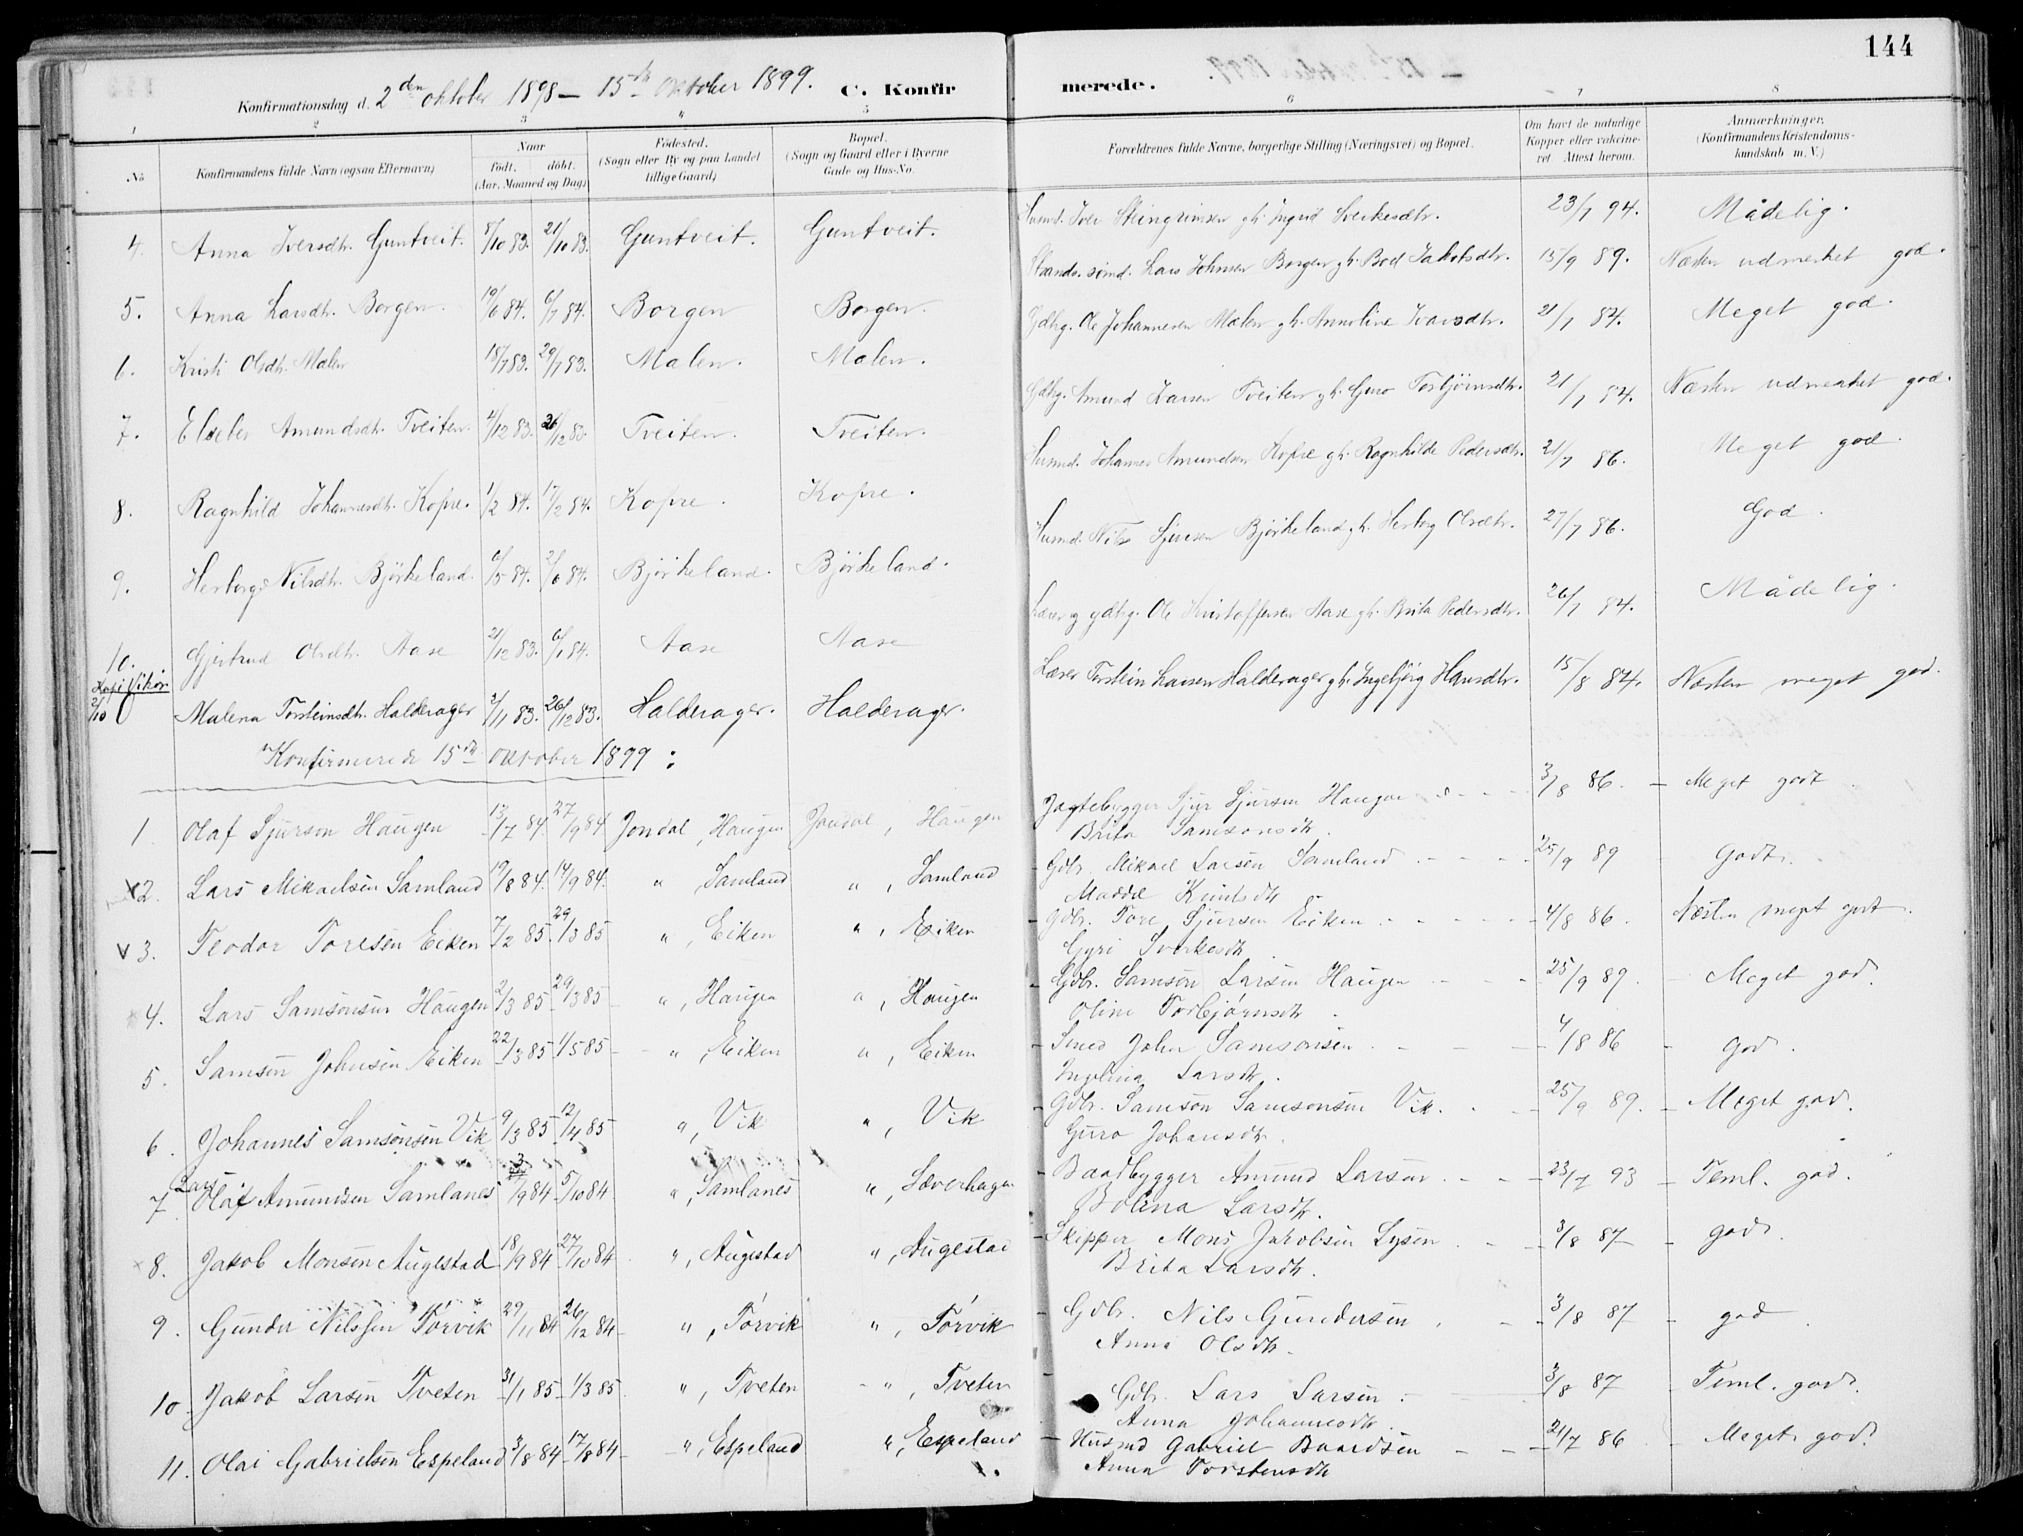 144
Konfirmationsdag d. 2den oktober 1898 – 15de Oktober 1899. C. Konfirmerede.
1 2 3 4 5 6 7 8
No Konfirmandens fulde Navn (ogsaa Efternavn) Naar født. døbt. (Aar, Maaned og Dag) Fødested. (Sogn eller By og paa Landet tillige Gaard) Bopæl. (Sogn og Gaard eller i Byerne Gade og Hus-No. Forældrenes fulde Navne, borgerlige Stilling (Næringsvei) og Bopæl. Om havt de naturlige Kopper eller vakcineret. Attest herom. Anmærkninger. (Konfirmandens Kristendomskundskab m. V.)
4. Anna Iversdtr. Guntveit. 8/10 83. 21/10 83. Guntveit. Guntveit. Husmd. Iver Steingrimsen gh. Ingrid Sverkesdtr. 23/7 94. Mådelig.
5. Anna Larsdtr. Borgen. 19/6 84. 6/7 84. Borgen Borgen. Strands. Lars Johnsen Borgen gh. Bod Jakobsdtr. 15/9 89. Næsten udmerket god.
6. Kristi Olsdtr. Malen 15/7 83. 29/7 83. Malen. Malen. Gdbg. Ole Johannesen Malen gh. Annoline Ivarsdtr. 21/7 84. Meget god.
7. Elsebe Amundsdtr. Tveiten. 4/12 83. 26/12 83. Tveiten. Tveiten. Gdbg. Amund Larsen Tveiten gh. Guro Torbjörnsdtr. 21/7 84. Næsten udmerket god.
8. Ragnhild Johannesdtr. Kopre. 1/2 84. 17/2 84. Kopre. Kopre. Husmd. Johannes Amundsen Kopre gh. Ragnhilde Pedersdtr. 21/7 86. Meget god.
9. Herborg Nilsdtr. Björkeland. 6/5 84. 2/6 84. Björkeland. Björkeland. Husmd. Nils Sjursen Björkeland gh. Herborg Olsdtr. 27/7 86. God.
10. Gjertrud Olsdtr. Aase 21/12 83. 6/1 84. Aase Aase Lærer og gdbg. Ole Kristoffersen Aase gh. Brita Pedersdtr. 26/7 84. Mådelig.
Vikör 2/10 Malena Torsteinsdtr. Halderager 3/11 83. 26/12 83. Halderager. Halderager. Lærer Torstein Larsen Halderager gh. Ingebjörg Hansdtr. 15/8 84. Næsten meget god.
Konfirmerede 15de oktober 1899:
1 Olaf Sjurson Haugen 13/7 84 27/9 84 Jondal, Haugen Jondal, Haugen Jagtebygger Sjur Sjursen Haugen 3/8 86. – Meget godt
Brita Samsonsdtr.
2. Lars Mikaelsen Samland 19/8 84. 14/9 84. " Samland " , Samland Gdbr. Mikael Larsen Samland 25/9 89 Godt.
Maddel Knutsdtr
v 3. Teodor Toresen Eiken 7/2 85. 29/3 85 " , Eiken " , Eiken Gdbr. Tore Sjursen Eiken 4/8 86. Næsten meget godt.
Gyri Sverkesdtr
4. Lars Samsonsen Haugen 2/3 85 29/3 85 " , Haugen " , Haugen Gdbr. Samson Larsen Haugen 25/9 89. – Meget god.
Oline Torbjörnsdtr.
5. Samson Johnsen Eiken 22/3 85 1/5 85 – " , Eiken " , Eiken Smed John Samsonsen 4/8 86 – god.
Ingelina Larsdtr.
6. Johannes Samsonsen Vik 9/3 85 12/4 85 " , Vik " , Vik Gdbr. Samson Samsonsen Vik. 25/9 89. – Meget god.
Guro Johansdtr.
7 Lars Olaf Amundsen Samlanes 3/9 84 5/10 84 " , Samlanes " , Sæverhagen Baadbygger Amund Larsen 23/7 93 – Teml. god.
Bolena Larsdtr.
8. Jakob Monsen Augestad 18/9 84 27/10 84 " , Augestad " , Augestad Skipper Mons Jakobsen Lysen 3/8 87 – god.
Brita Larsdtr.
9. Gunder Nilssen Törvik 29/11 84 26/12 84 – " , Törvik " , Törvik Gdbr. Nils Gundersen 3/8 87 – god
Anna Olsdtr.
10 Jakob Larsen Tveten 31/1 85 1/3 85 " , Tveten " , Tveten Gdbr. Lars Larsen 3/8 87 – Teml. god.
Anna Johannesdtr.
11. Olai Gabrielsen Espeland 3/8 84 17/8 84 – " , Espeland " , Espeland Husmd Gabriel Baardsen 21/7 86 – Meget god.
Anna Torstensdtr